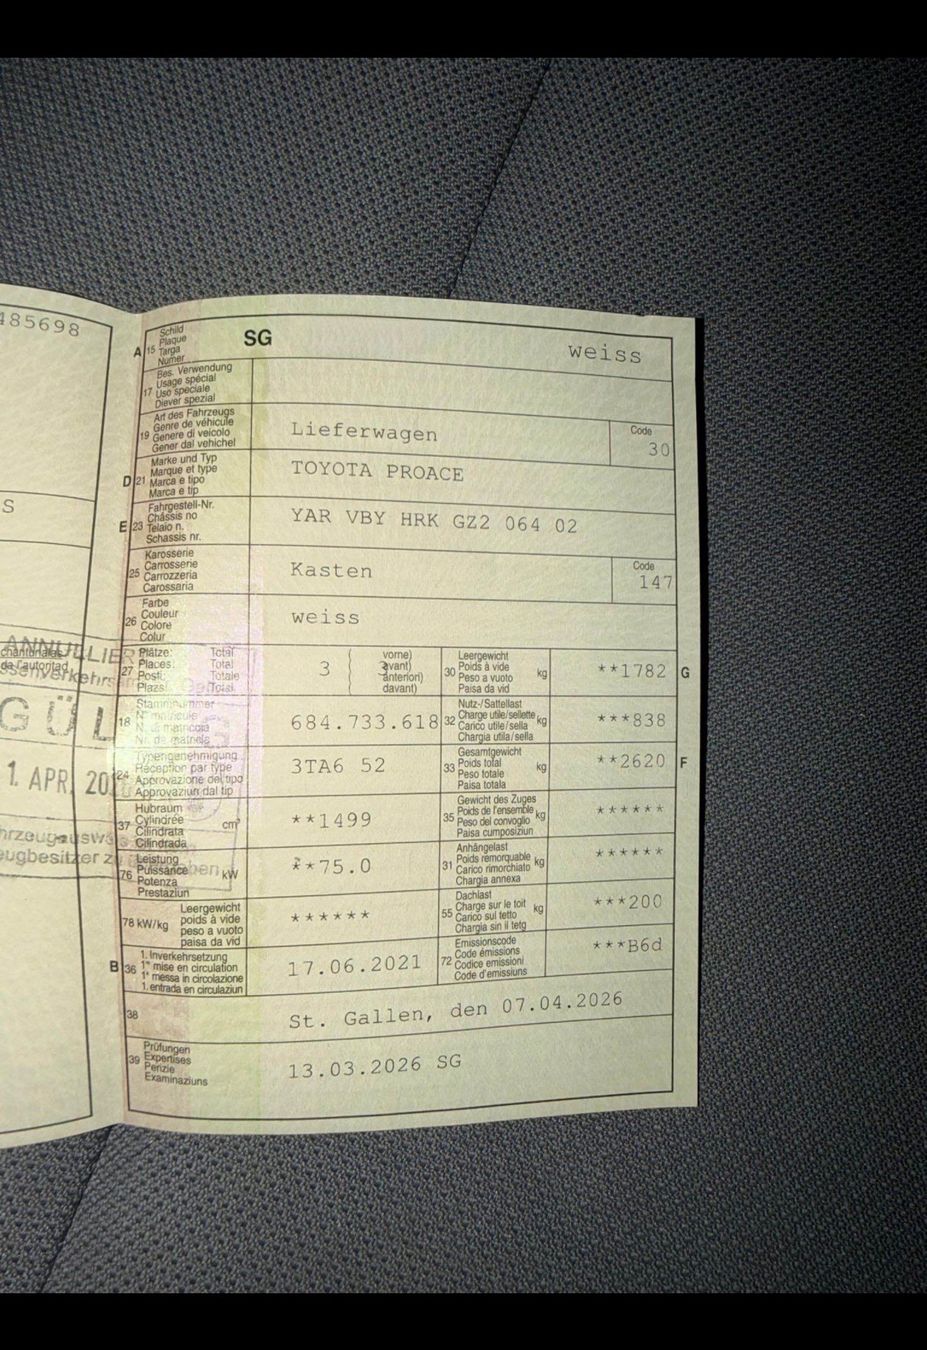 485698
S
ANNULLIER
chantonales
da l'autoritad
ssenverkehrs
GÜL G
1. APR. 20
hrzeugausw
eugbesitzer zu geben
A 15 Schild
Plaque
Targa
Numer
SG
weiss
17 Bes. Verwendung
Usage spécial
Uso speciale
Diever spezial
19 Art des Fahrzeugs
Genre de véhicule
Genere di veicolo
Gener dal vehichel
Lieferwagen
Code
30
D 21 Marke und Typ
Marque et type
Marca e tipo
Marca e tip
TOYOTA PROACE
E 23 Fahrgestell-Nr.
Châssis no
Telaio n.
Schassis nr.
YAR VBY HRK GZ2 064 02
25 Karosserie
Carrosserie
Carrozzeria
Carossaria
Kasten
Code
147
26 Farbe
Couleur
Colore
Colur
weiss
27 Plätze: Total
Places: Total
Posti: Totale
Plazs: Total
3
vorne)
avant)
anteriori)
davant)
3
30 Leergewicht
Poids à vide
Peso a vuoto
Paisa da vid
kg
**1782 G
18 Stammnummer
N° matricule
N. di matricola
Nr. da matricla
684.733.618
32 Nutz-/Sattellast
Charge utile/sellette
Carico utile/sella
Chargia utila/sella
kg
***838
24 Typengenehmigung
Réception par type
Approvazione del tipo
Approvaziun dal tip
3TA6 52
33 Gesamtgewicht
Poids total
Peso totale
Paisa totala
kg
**2620 F
37 Hubraum
Cylindrée
Cilindrata
Cilindrada
cm³
**1499
35 Gewicht des Zuges
Poids de l'ensemble
Peso del convoglio
Paisa cumposiziun
kg
******
76 Leistung
Puissance
Potenza
Prestaziun
kW
**75.0
31 Anhängelast
Poids remorquable
Carico rimorchiato
Chargia annexa
kg
******
78 kW/kg Leergewicht
poids à vide
peso a vuoto
paisa da vid
******
55 Dachlast
Charge sur le toit
Carico sul tetto
Chargia sin il tetg
kg
***200
B 36 1. Inverkehrsetzung
1re mise en circulation
1a messa in circolazione
1. entrada en circulaziun
17.06.2021
72 Emissionscode
Code émissions
Codice emissioni
Code d'emissiuns
***B6d
38
St. Gallen, den 07.04.2026
39 Prüfungen
Expertises
Perizie
Examinaziuns
13.03.2026 SG